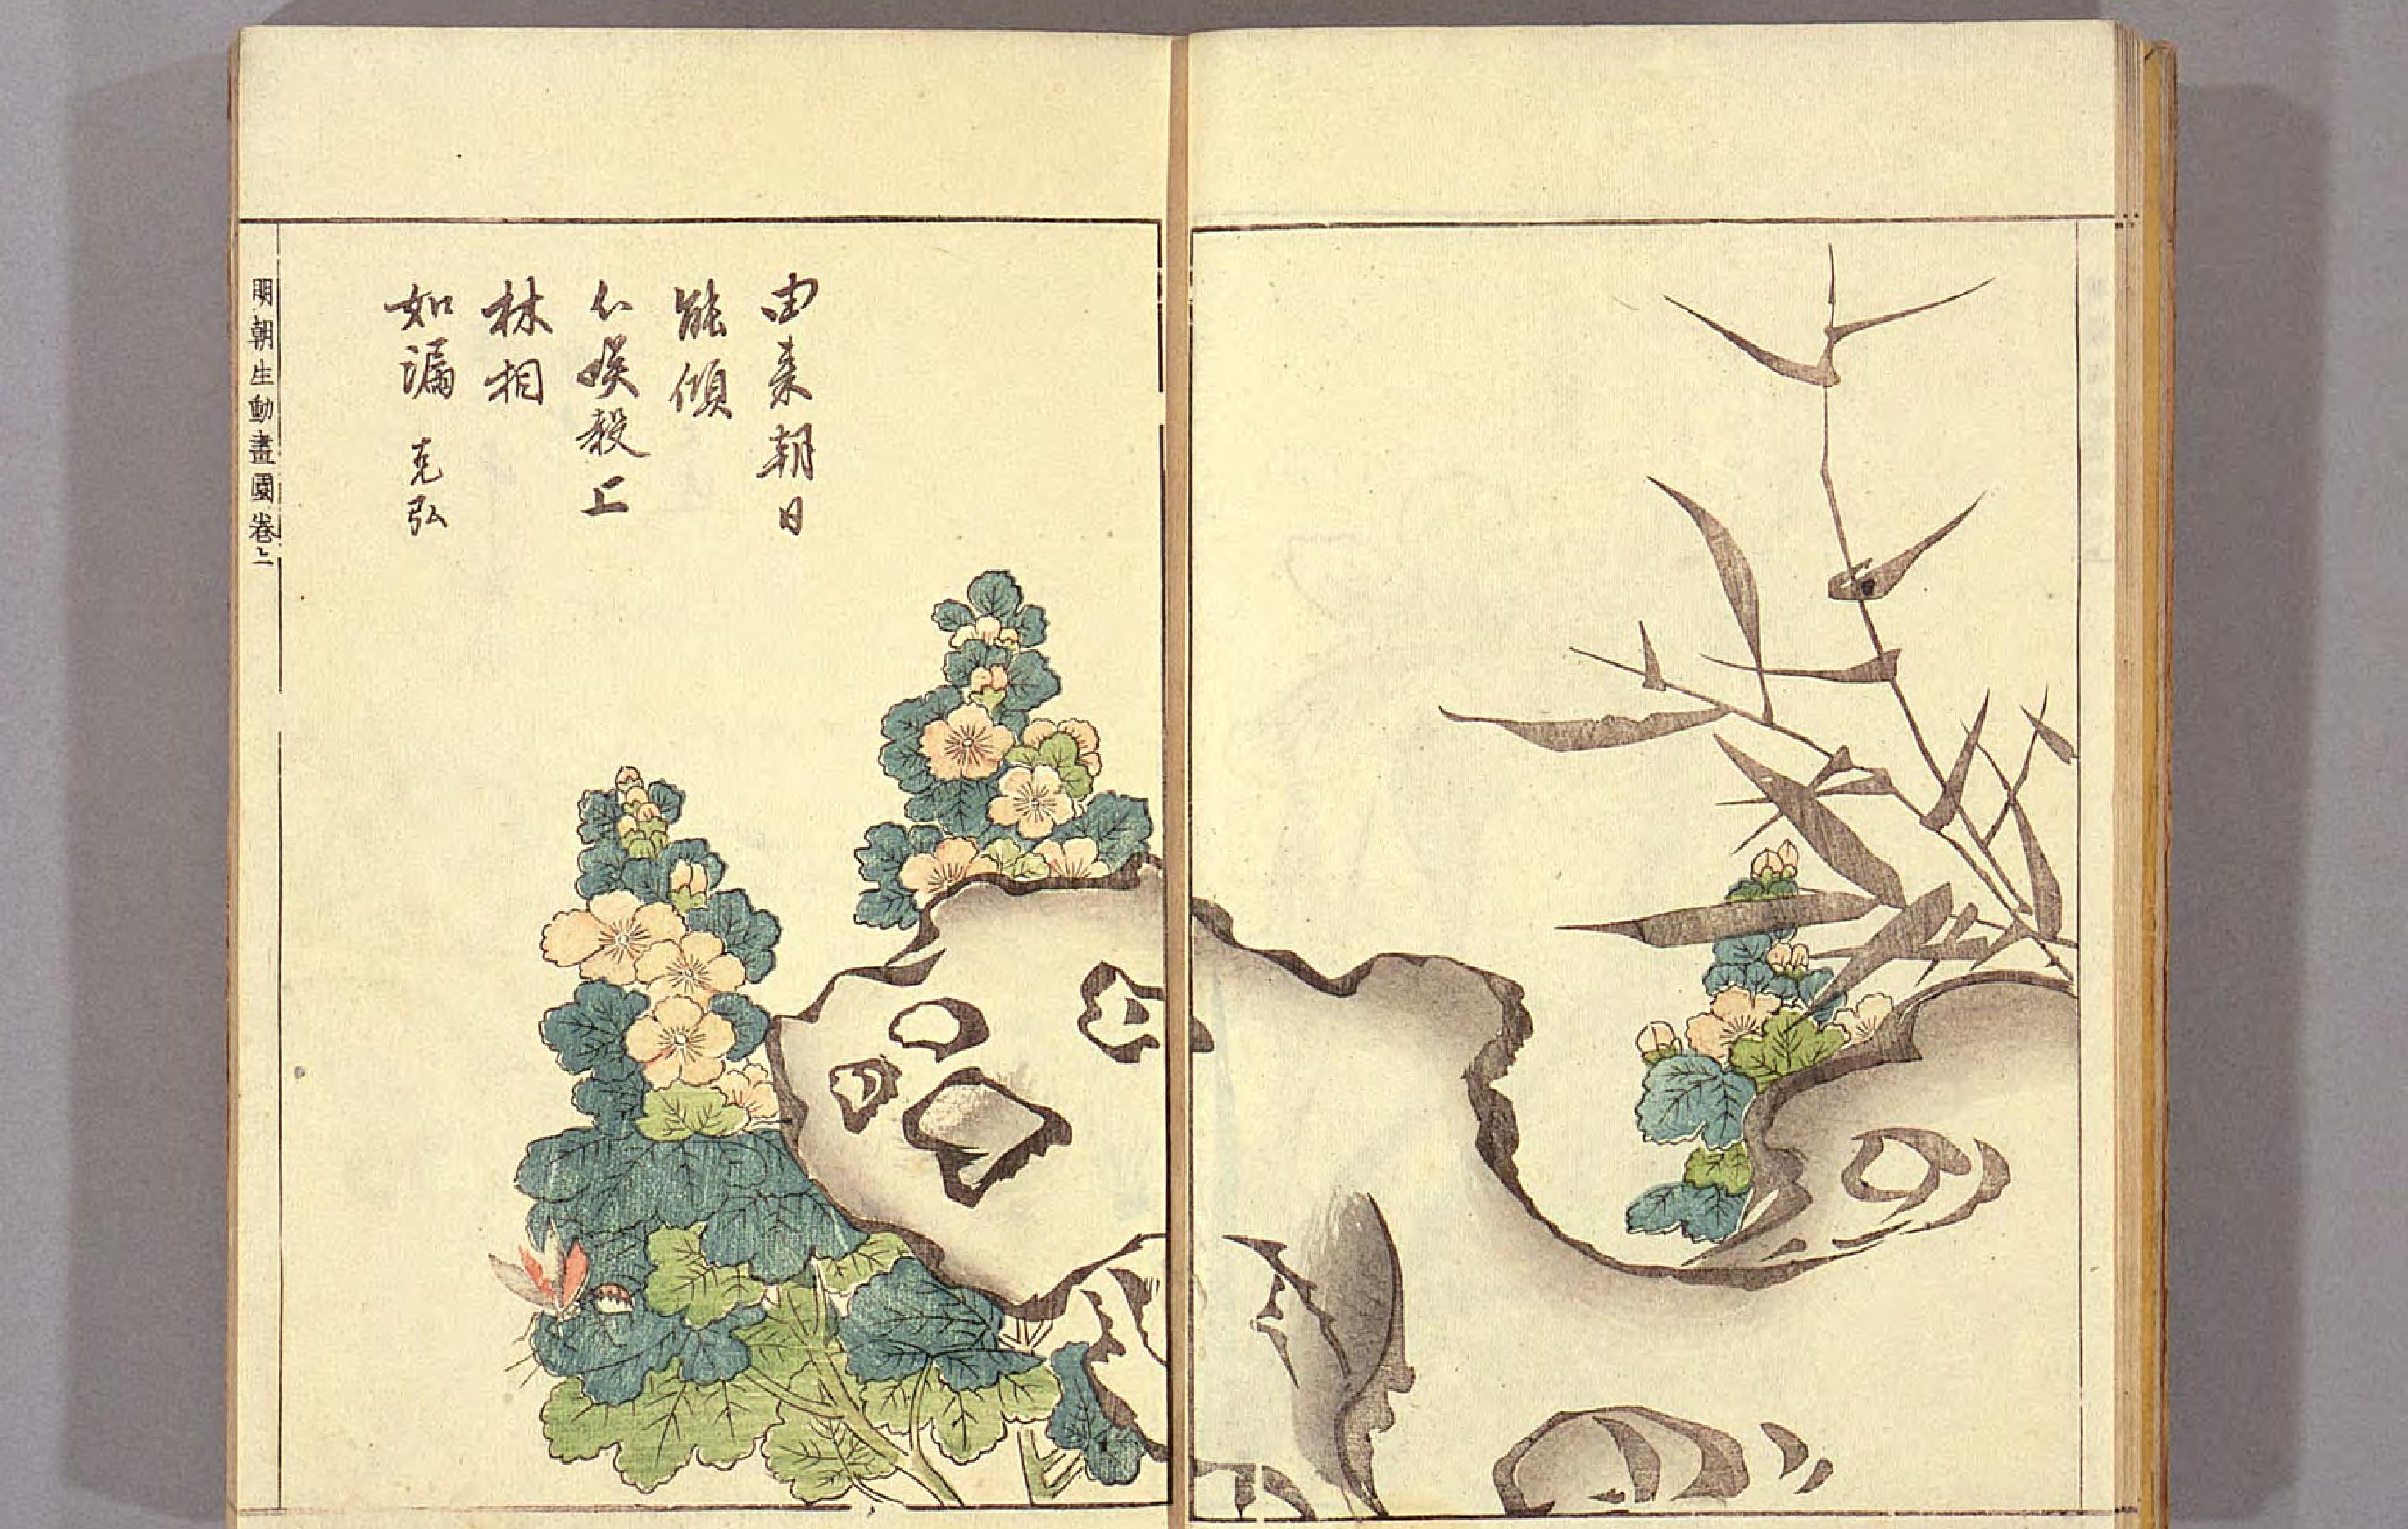 由来朝日
能傾
心娱殺上
林相
如漏 克弘
明朝生動畫園卷上